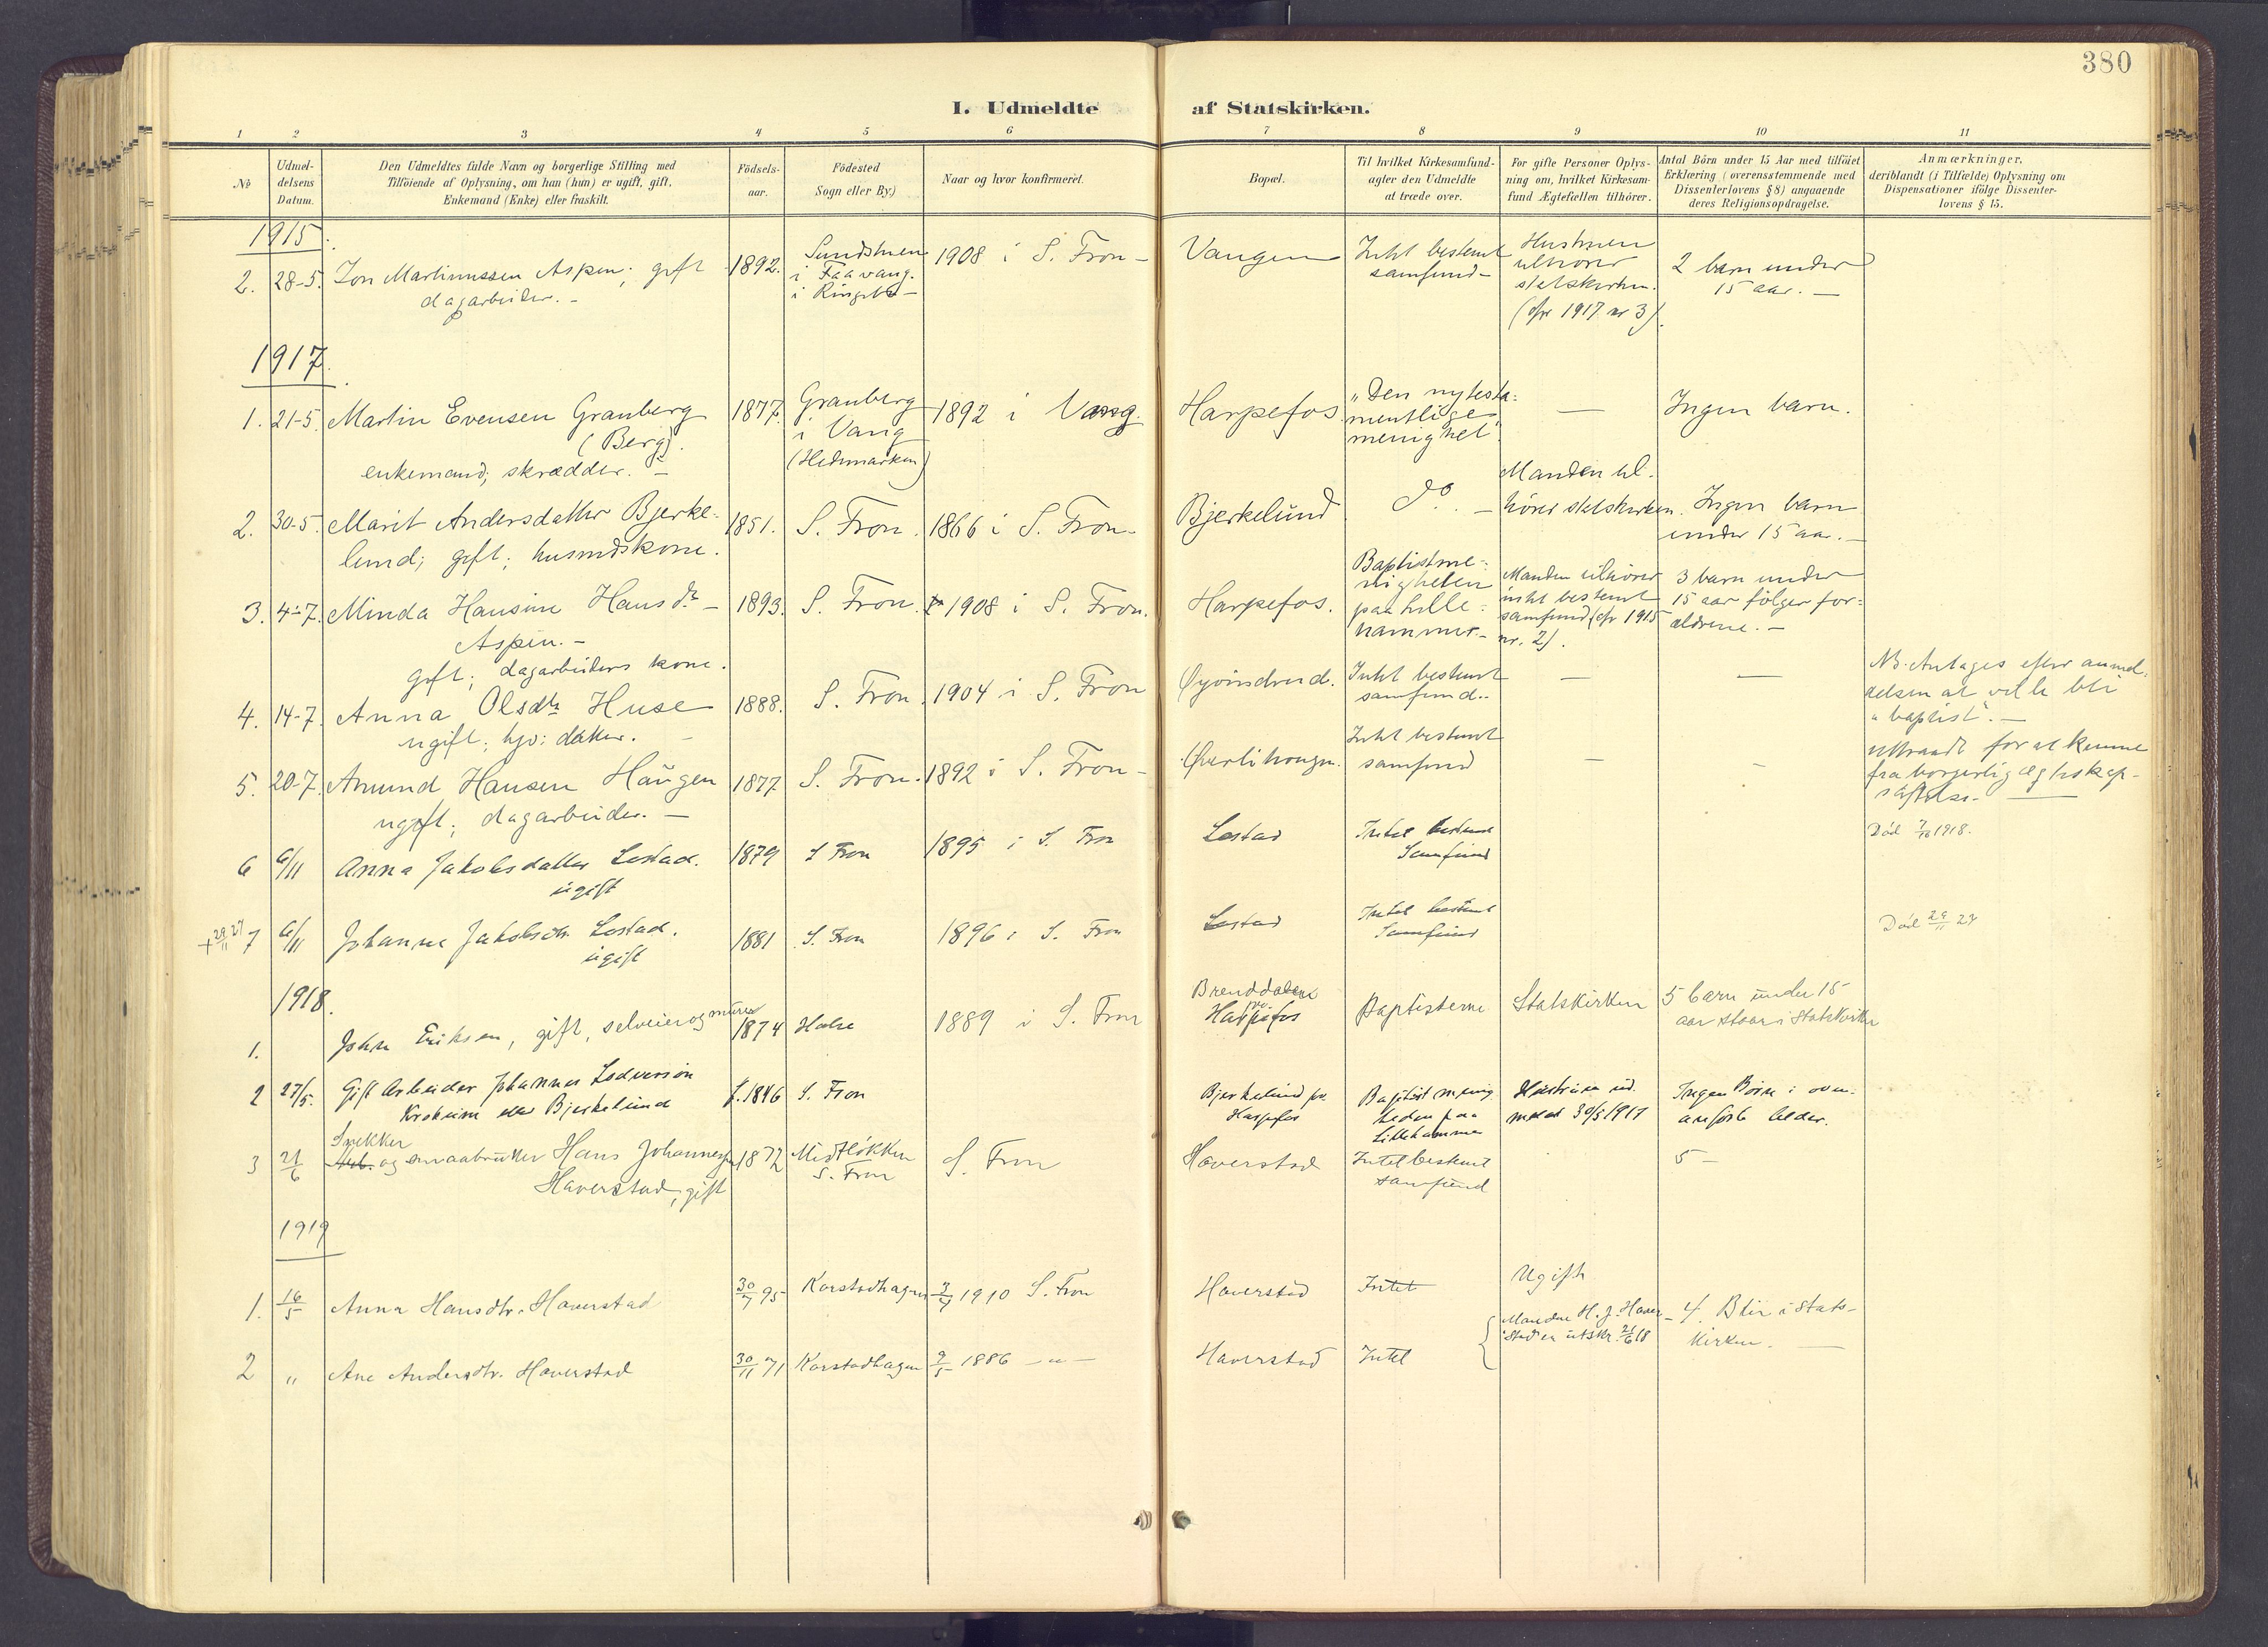 380
I. Udmeldte af Statskirken.
1 2 3 4 5 6 7 8 9 10 11
No
Udmel-
delsens
Datum.
Den Udmeldtes fulde Navn og borgerlige Stilling med
Tilföiende af Oplysning, om han (hun) er ugift, gift,
Enkemand (Enke) eller fraskilt.
Födsels-
aar.
Födested
Sogn eller By.)
Naar og hvor konfirmeret.
Bopæl.
Til hvilket Kirkesamfund-
agter den Udmeldte
at træde over.
For gifte Personer Oplys-
ning om, hvilket Kirkesam-
fund Ægtefællen tilhörer.
Antal Börn under 15 Aar med tilföiet
Erklæring (overensstemmende med
Dissenterlovens § 8) angaaende
deres Religionsopdragelse.
Anmærkninger,
deriblandt (i Tilfælde) Oplysning om
Dispensationer ifölge Dissenter-
lovens § 15.
1915
2. 28-5. Jon Martinussen Aspen; gift
dagarbeider. -
1892.
Sundstuen
i Faavang.
i Ringebu -
1908 i S. Fron -
Vangen
Intet bestemt
samfund -
Hustruen
tilhører
statskirken.
(cfr 1917 nr 3).
2 barn under
15 aar. -
1917.
1. 21-5. Martin Evensen Granberg
(Berg).
enkemand; skrædder. -
1877.
Granberg
i Vang
(Hedemarken)
1892 i Vang.
Harpefos.
"Den nytesta-
mentlige
menighet".
-
Ingen barn.
2. 30-5. Marit Andersdatter Bjerke-
lund; gift; husmdskone.
1851.
S. Fron.
1866 i S. Fron.
Bjerkelund
do. -
Manden til-
hörer statskirken.
Ingen barn
under 15 aar. -
3. 4-7. Minda Hansine Hansdtr -
Aspen. -
gift; dagarbeiders kone.
1893.
S. Fron.
1908 i S. Fron.
Harpefos.
Baptistme-
nigheten
paa Lille-
hammer. -
Manden tilhører
intet bestemt
samfund (cfr 1915
nr. 2).
3 barn under
15 aar følger for-
ældrene. -
4. 14-7. Anna Olsdtr Huse
ugift; hjv: datter. -
1888.
S. Fron.
1904 i S. Fron
Intet bestemt
samfund. -
-
-
NB. Antages efter anmel-
delsen at ville bli
"baptist". -
5. 20-7. Amund Hansen Haugen
ugift; dagarbeider. -
1877
S. Fron.
1892 i S. Fron -
Intet bestemt
samfund
-
-
Uttraadt for at kunne
6 6/11 Anna Jakobsdatter Lostad.
ugift
1879
S Fron
1895 i S. Fron
Lostad
Intet bestemt
Samfund
Död 7/10 1918.
+ 29/11 27 7 6/11 Johanna Jakobsdtr. Lostad.
ugift
1881
S. Fron
1896 i S. Fron
Lostad
Intet bestemt
Samfund
Död 29/11 27
1918.
1. John Eriksen, gift, selveier og murer
1874
1889 i S. Fron
Brenddalen
pr.
Harpefos
Baptisterne
Statskirken
5 barn under 15
aar staar i Statskirken
2 27/5. Gift Arbeider Johannes
eller Bjerkelund
f. 1846
S. Fron
Bjerkelund pr.
Harpefos
Baptist menig
heden paa
Lillehammer
Hustruen ud-
meldt 30/5 1917
Ingen Börn i oven-
anförte alder.
3 21/6 Snekker
og smaabruker Hans Johannesen
Haverstad, gift
1872
Midtløkken
S. Fron
S. Fron
Haverstad
Intet bestemt
samfund
5 -
1919
1. 16/5 Anna Hansdtr. Haverstad
30/7 95
Korstadhagen
3/7 1910 S. Fron
Haverstad
Intet
Ugift
2 " Ane Andersdtr. Haverstad
30/11 71
Korstadhagen
9/5 1886 - " -
Haverstad
Intet
Manden H. J. Haver-
stad er utskr. 21/6 18
4. Blir i Stats-
kirken. -